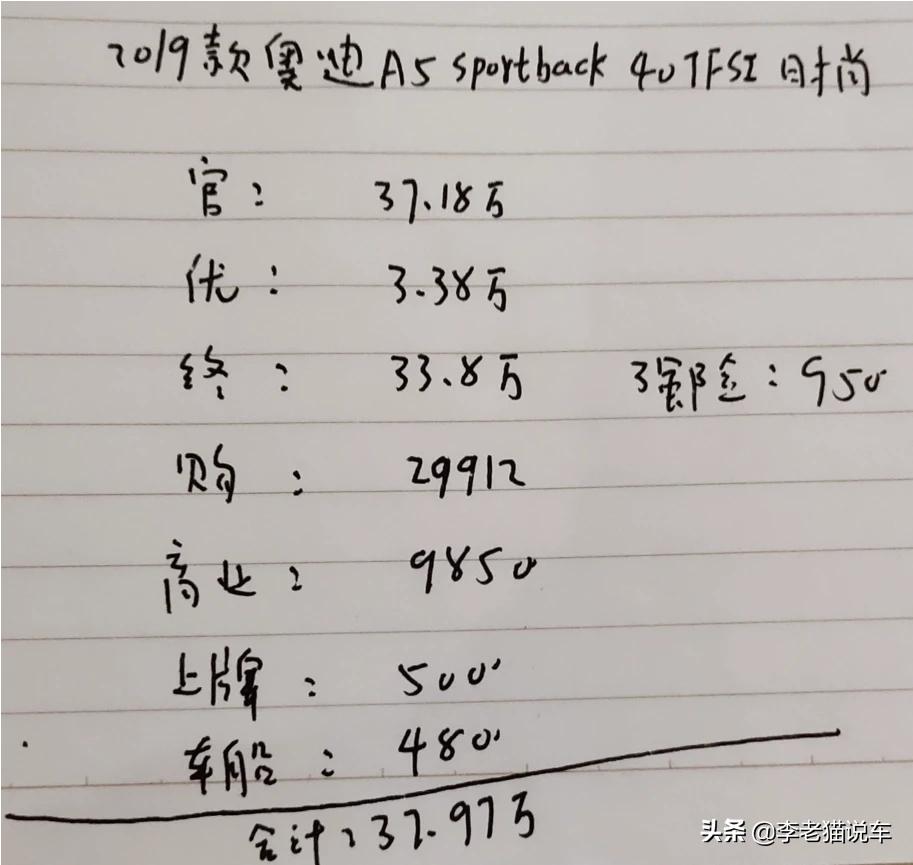 2019款奥迪A5 sportback 40TFSI 时尚
官： 37.18万
优： 3.38万
终： 33.8万 强险：950
购： 29912
商业： 9850
上牌： 500
车船： 480
合计：37.97万
头条 @李老猫说车